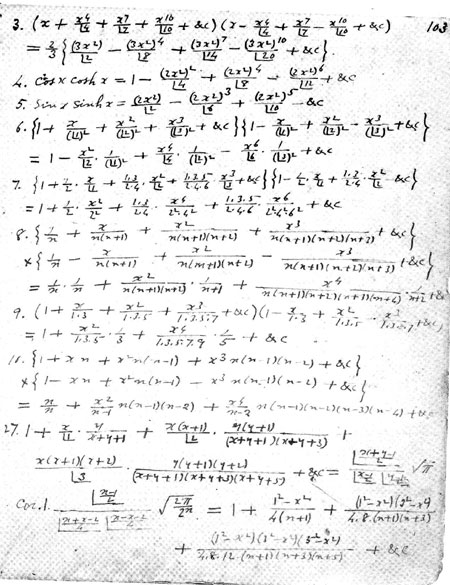 103
3. (x + x⁴/|4 + x⁷/|7 + x¹⁰/|10 + &c)(x - x⁴/|4 + x⁷/|7 - x¹⁰/|10 + &c)
= 2/3 {(3x²)/|2 - (3x²)⁴/|8 + (3x²)⁷/|14 - (3x²)¹⁰/|20 + &c}.
4. Cos x cosh x = 1 - (2x²)²/|4 + (2x²)⁴/|8 - (2x²)⁶/|12 + &c
5. Sin x sinh x = (2x²)/|2 - (2x²)³/|6 + (2x²)⁵/|10 - &c
6. {1 + x/(|1)² + x²/(|2)² + x³/(|3)² + &c}{1 - x/(|1)² + x²/(|2)² - x³/(|3)² + &c}
= 1 - x²/|2 · 1/(|1)² + x⁴/|4 · 1/(|2)² - x⁶/|6 · 1/(|3)² + &c
7. {1 + 1/2 · x/|1 + 1.3/2.4 · x²/|2 + 1.3.5/2.4.6 · x³/|3 + &c}{1 - 1/2 · x/|1 + 1.3/2.4 · x²/|2 - &c}
= 1 + 1/2 · x²/2² + 1.3/2.4 · x⁴/2²4² + 1.3.5/2.4.6 · x⁶/2²4²6² + &c
8. {1/n + x/n(n+1) + x²/n(n+1)(n+2) + x³/n(n+1)(n+2)(n+3) + &c}
× {1/n - x/n(n+1) + x²/n(n+1)(n+2) - x³/n(n+1)(n+2)(n+3) + &c}
= 1/n · 1/n + x²/n(n+1)(n+2) · 1/n+1 + x⁴/n(n+1)(n+2)(n+3)(n+4) · 1/n+2 + &c
9. (1 + x/1.3 + x²/1.3.5 + x³/1.3.5.7 + &c)(1 - x/1.3 + x²/1.3.5 - x³/1.3.5.7 + &c)
= 1 + x²/1.3.5 · 1/3 + x⁴/1.3.5.7.9 · 1/5 + &c
10. {1 + xn + x²n(n-1) + x³n(n-1)(n-2) + &c}
× {1 - xn + x²n(n-1) - x³n(n-1)(n-2) + &c}
= n/n + x²/n-1 n(n-1)(n-2) + x⁴/n-2 n(n-1)(n-2)(n-3)(n-4) + &c
27. 1 + x/|1 · y/x+y+1 + x(x+1)/|2 · y(y+1)/(x+y+1)(x+y+3) +
x(x+1)(x+2)/|3 · y(y+1)(y+2)/(x+y+1)(x+y+3)(x+y+5) + &c = √π
Cor. 1. √2π/2n = 1 + 1²-x²/4(n+1) + (1²-x²)(3²-x²)/4.8.(n+1)(n+3)
+ (1²-x²)(3²-x²)(5²-x²)/4.8.12.(n+1)(n+3)(n+5) + &c